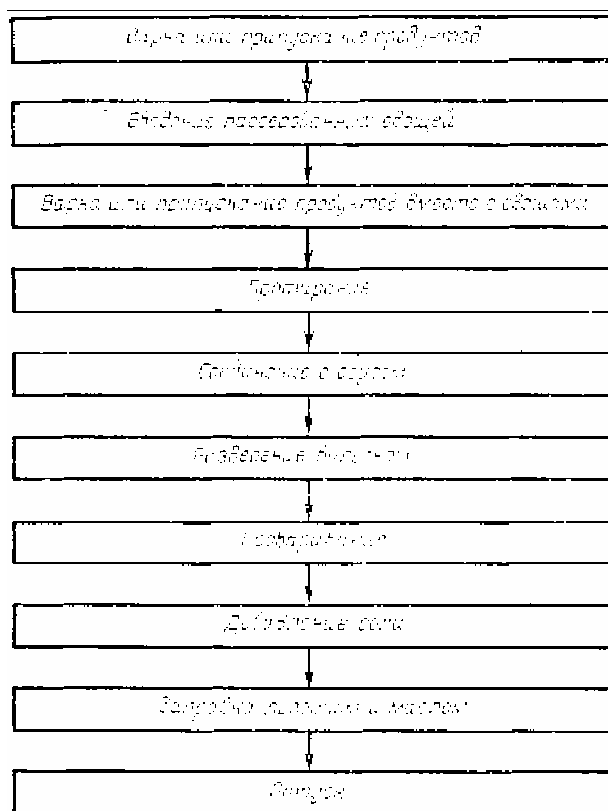 Варка или припускание продуктов
Введение пассерованных овощей
Варка или припускание продуктов вместе с овощами
Протирание
Соединение с соусом
Разведение бульоном
Проваривание
Добавление соли
Заправка льезоном и маслом
Отпуск